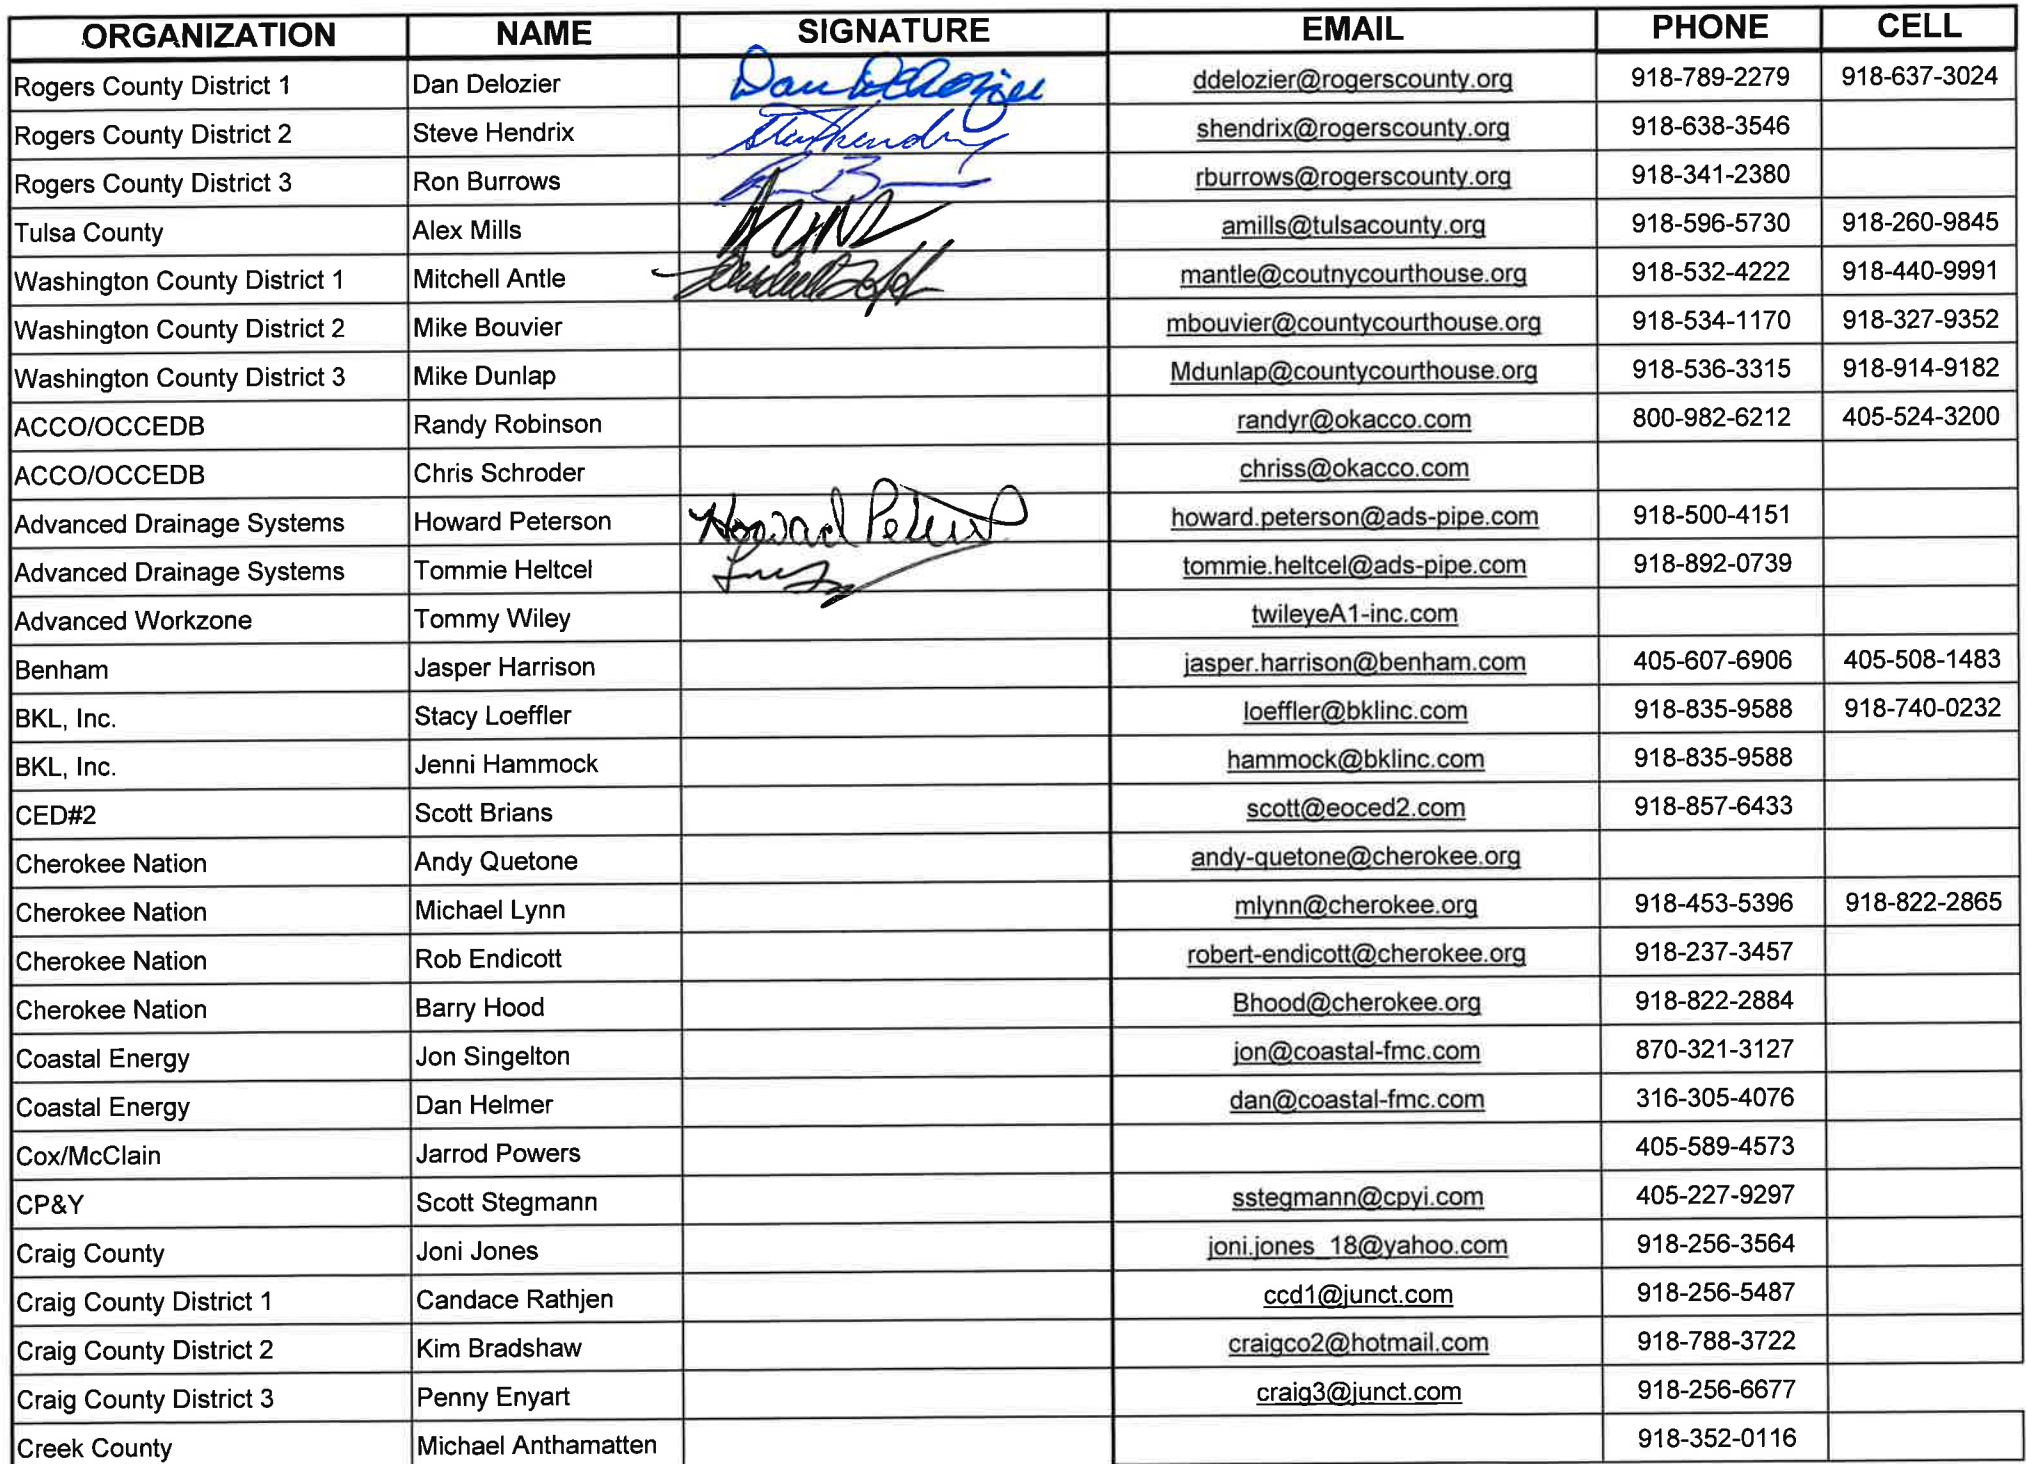 ORGANIZATION NAME SIGNATURE EMAIL PHONE CELL
Rogers County District 1 Dan Delozier Dan Delozier ddelozier@rogerscounty.org 918-789-2279 918-637-3024
Rogers County District 2 Steve Hendrix shendrix@rogerscounty.org 918-638-3546
Rogers County District 3 Ron Burrows rburrows@rogerscounty.org 918-341-2380
Tulsa County Alex Mills amills@tulsacounty.org 918-596-5730 918-260-9845
Washington County District 1 Mitchell Antle mantle@coutnycourthouse.org 918-532-4222 918-440-9991
Washington County District 2 Mike Bouvier mbouvier@countycourthouse.org 918-534-1170 918-327-9352
Washington County District 3 Mike Dunlap Mdunlap@countycourthouse.org 918-536-3315 918-914-9182
ACCO/OCCEDB Randy Robinson randyr@okacco.com 800-982-6212 405-524-3200
ACCO/OCCEDB Chris Schroder chriss@okacco.com
Advanced Drainage Systems Howard Peterson Howard Peterson howard.peterson@ads-pipe.com 918-500-4151
Advanced Drainage Systems Tommie Heltcel tommie.heltcel@ads-pipe.com 918-892-0739
Advanced Workzone Tommy Wiley twileyeA1-inc.com
Benham Jasper Harrison jasper.harrison@benham.com 405-607-6906 405-508-1483
BKL, Inc. Stacy Loeffler loeffler@bklinc.com 918-835-9588 918-740-0232
BKL, Inc. Jenni Hammock hammock@bklinc.com 918-835-9588
CED#2 Scott Brians scott@eoced2.com 918-857-6433
Cherokee Nation Andy Quetone andy-quetone@cherokee.org
Cherokee Nation Michael Lynn mlynn@cherokee.org 918-453-5396 918-822-2865
Cherokee Nation Rob Endicott robert-endicott@cherokee.org 918-237-3457
Cherokee Nation Barry Hood Bhood@cherokee.org 918-822-2884
Coastal Energy Jon Singelton jon@coastal-fmc.com 870-321-3127
Coastal Energy Dan Helmer dan@coastal-fmc.com 316-305-4076
Cox/McClain Jarrod Powers 405-589-4573
CP&Y Scott Stegmann sstegmann@cpyi.com 405-227-9297
Craig County Joni Jones joni.jones_18@yahoo.com 918-256-3564
Craig County District 1 Candace Rathjen ccd1@junct.com 918-256-5487
Craig County District 2 Kim Bradshaw craigco2@hotmail.com 918-788-3722
Craig County District 3 Penny Enyart craig3@junct.com 918-256-6677
Creek County Michael Anthamatten 918-352-0116